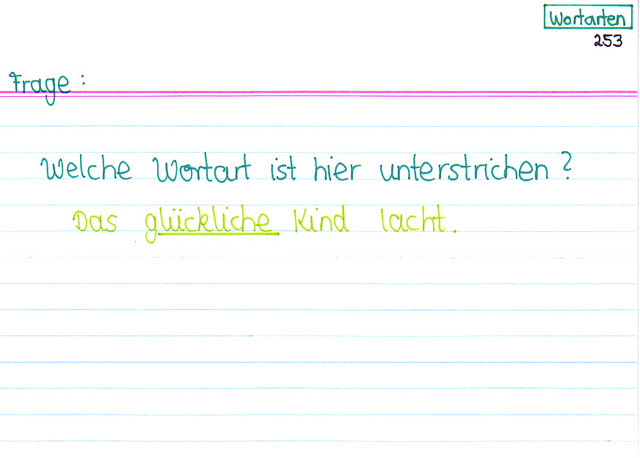 Wortarten
253
Frage:
Welche Wortart ist hier unterstrichen?
Das glückliche Kind lacht.